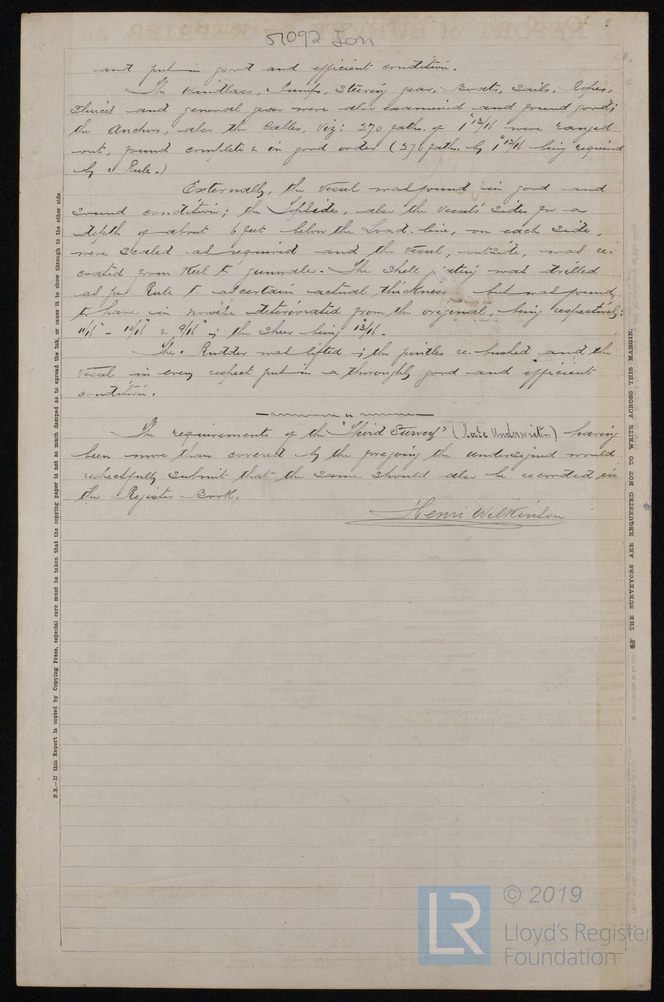 51092 Ion
and put in good and efficient condition.
The Windlass, Pumps, Steering gear, Boats, Sails, Ropes,
Sluices and general gear were also examined and found good;
the Anchors, also the Cables, viz: 270 faths. of 1" 13/16 were ranged
out, found complete & in good order (270 faths. by 1" 12/16 being required
by Rule.)
Externally, the Vessel was found in good and
sound condition; the Topsides, also the Vessels' sides for a
depth of about 6 feet below the Load-line, on each side,
were scaled as required and the Vessel, outside, was re-
coated from Keel to gunwale. The shell plating was drilled
as per Rule to ascertain actual thickness but was found
to have in nowise deteriorated from the original, being respectively:
11/16" - 10/16" & 9/16"; the sheer being 13/16.
The Rudder was lifted; the pintles re-bushed and the
Vessel in every respect put in a thoroughly good and efficient
condition.
The requirements of the "Third Survey" (Late Underwriter) having
been more than covered by the foregoing the undersigned would
respectfully submit that the same should also be recorded in
the Register Book.
Henri Wilkinson
N.B.—If this Report is copied by Copying Press, especial care must be taken that the copying paper is not so much damped as to spread the ink, or cause it to show through to the other side.
THE SURVEYORS ARE REQUESTED NOT TO WRITE ACROSS THIS MARGIN.
LR
© 2019
Lloyd's Register
Foundation